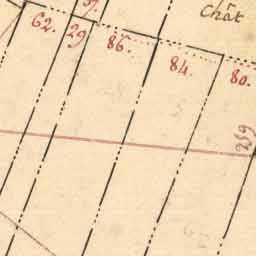 Chât
62. 29 86. 84. 80.
259